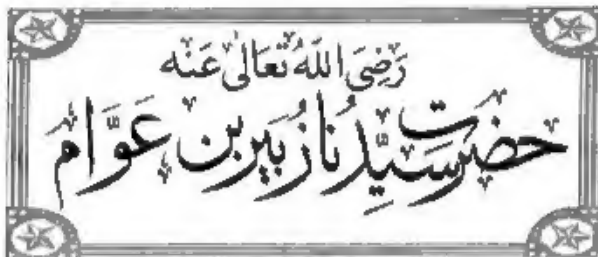 رَضِیَ اللّٰہُ تَعَالٰی عَنْہ
حضرت سَیِّدُنا زُبَیر بن عَوَّام